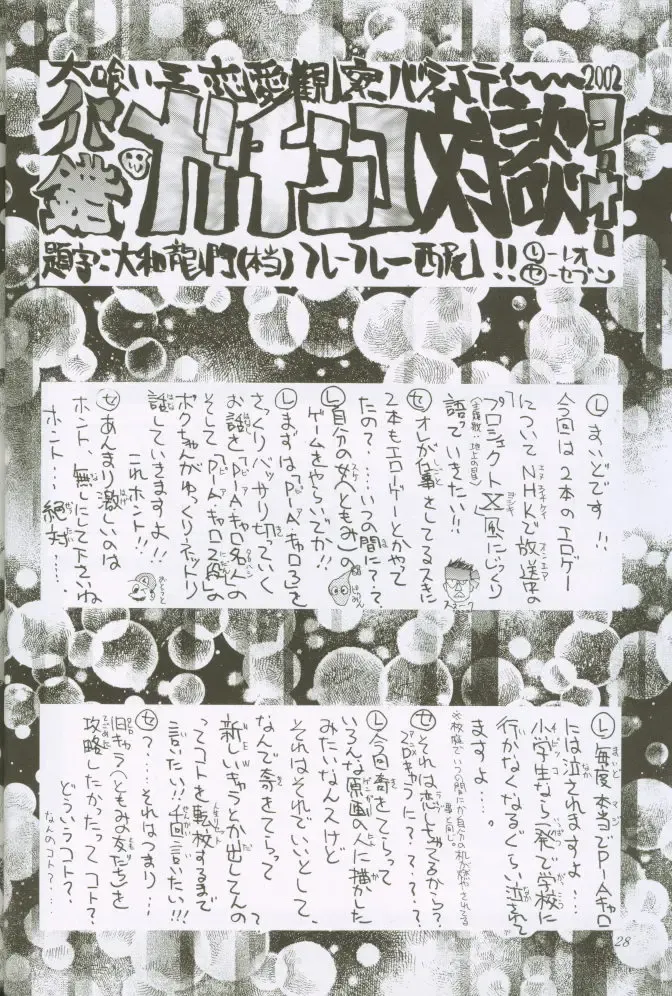 大喰い王恋愛観察バラエティー〜〜2002
犯鑑 ガチンコ対談コーナー
題字:大和龍門(本当)フレーフレー西尾!! Ⓛ-レオ
Ⓢ-セブン
Ⓛまいどです!!
今回は2本のエロゲー
についてNHKで放送中の
プロジェクトX風にじっくり
語っていきたい!!
Ⓢオレが仕事をしてるスキに
2本もエロゲーとかやって
たの?…いつの間に??
Ⓛ自分の女(ともみ)の
ゲームをやらいでか!!
Ⓛまずは、「Pia・キャロ3」を
さっくりバッサリ切っていく
お話を
そして「Pia・キャロ2」の
ボクちゃんがゆっくりネットリ
話していきますよ!!
これホント!!
Ⓢあんまり激しいのは
ホント、無しにして下さいね
ホント…絶対…。
おとうと
Ⓛ毎度本当でPiaキャロ
には泣されますよ…
小学生なら一発で学校に
行かなくなるぐらい泣されて
ますよ…。
Ⓢそれは恋しちゃってるから?
アニロキュラに????
Ⓛ今回寄をてらって
いろんな原画の人に描かした
みたいなんスけど
それはそれでいいとして、
なんで寄をてらって
新しいキャラとか出してんの?
ってコトを転校するまで
言いたい!!千回言いたい!!!
Ⓢ?…それはつまり…
旧キャラ(ともみの友だち)を
攻略したかったってコト?
どういうコト?
なんのコト?…
28